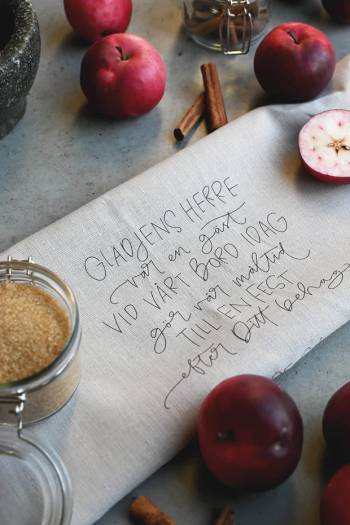 GLADJENS HERRE
var en gäst
VID VÅRT BORD IDAG
gör vår måltid
TILL EN FEST
efter Ditt behag